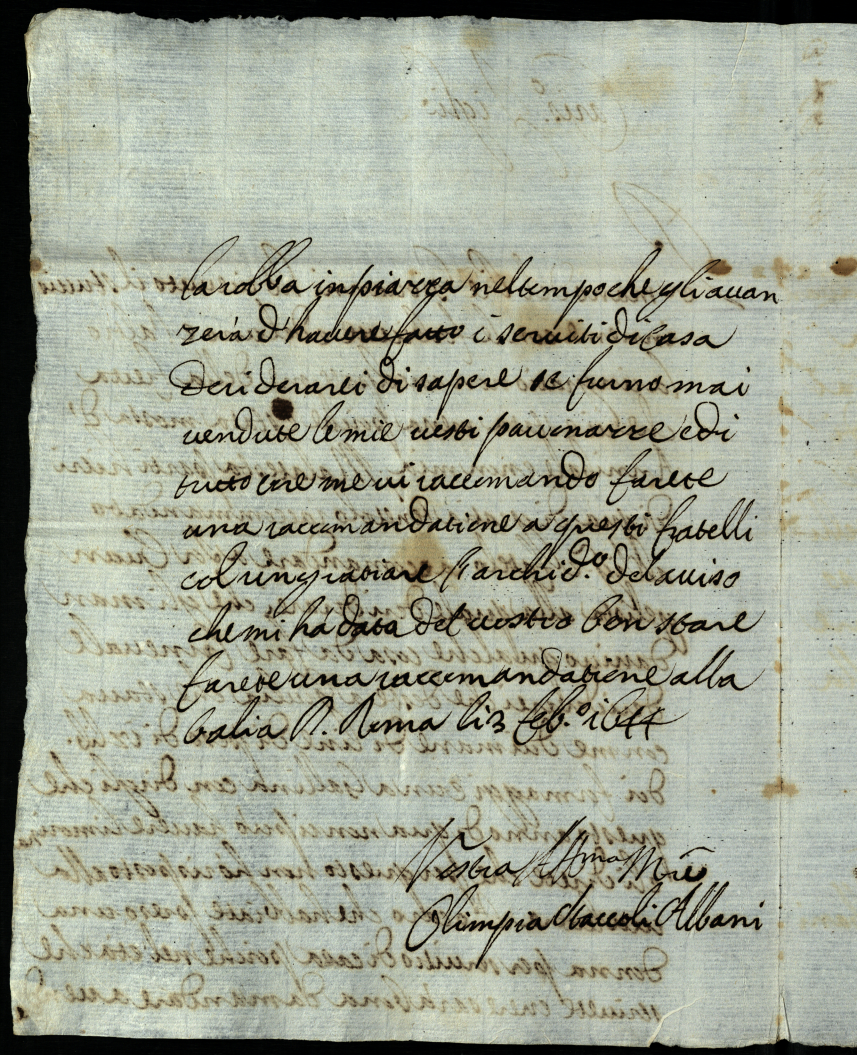 la robba in piazza nel tempo che gli auan
zerà d'hauere fatto i seruiti di casa
desiderarei di sapere se furno mai
vendute le mie uesti pauonazze e di
tutto core me ui raccomando farete
una raccomandatione a questi fratelli
col ringratiare l'archid.º del auiso
che mi hà data del uostro bon stare
farete una raccomandatione alla
balia R. Roma li 3 feb.º 1644
Vostra Aff.ma M.re
Olimpia Staccoli Albani